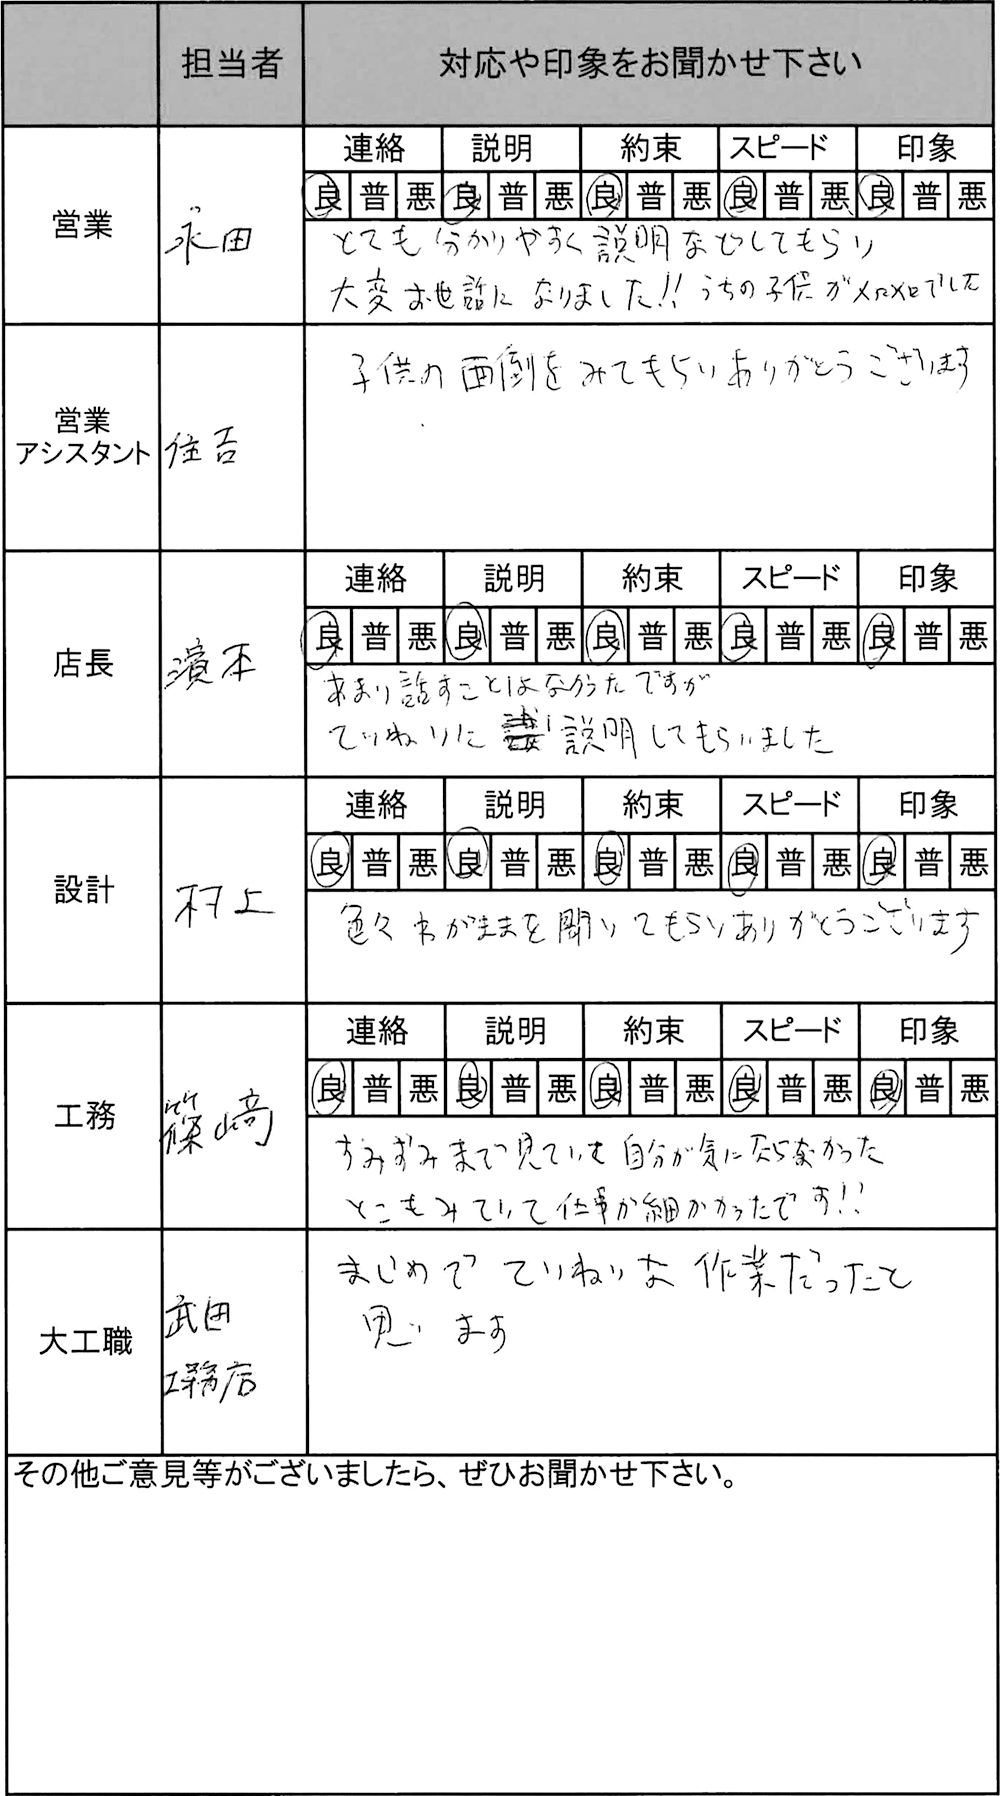 担当者 対応や印象をお聞かせ下さい
連絡 説明 約束 スピード 印象
良 普 悪 良 普 悪 良 普 悪 良 普 悪 良 普 悪
営業 永田
とても分かりやすく説明などしてもらい
大変お世話になりました!! うちの子供がメロメロでした
営業
アシスタント 住吉
子供の面倒をみてもらいありがとうございます
連絡 説明 約束 スピード 印象
良 普 悪 良 普 悪 良 普 悪 良 普 悪 良 普 悪
店長 濱本
あまり話すことはなかったですが
ていねいに 説明してもらいました
連絡 説明 約束 スピード 印象
良 普 悪 良 普 悪 良 普 悪 良 普 悪 良 普 悪
設計 村上
色々わがままを聞いてもらいありがとうございます
連絡 説明 約束 スピード 印象
良 普 悪 良 普 悪 良 普 悪 良 普 悪 良 普 悪
工務 篠崎
すみずみまで見ていて自分が気にならなかった
とこもみていて仕事が細かかったです!!
大工職 武田
工務店
まじめでていねいな作業だったと
思います
その他ご意見等がございましたら、ぜひお聞かせ下さい。